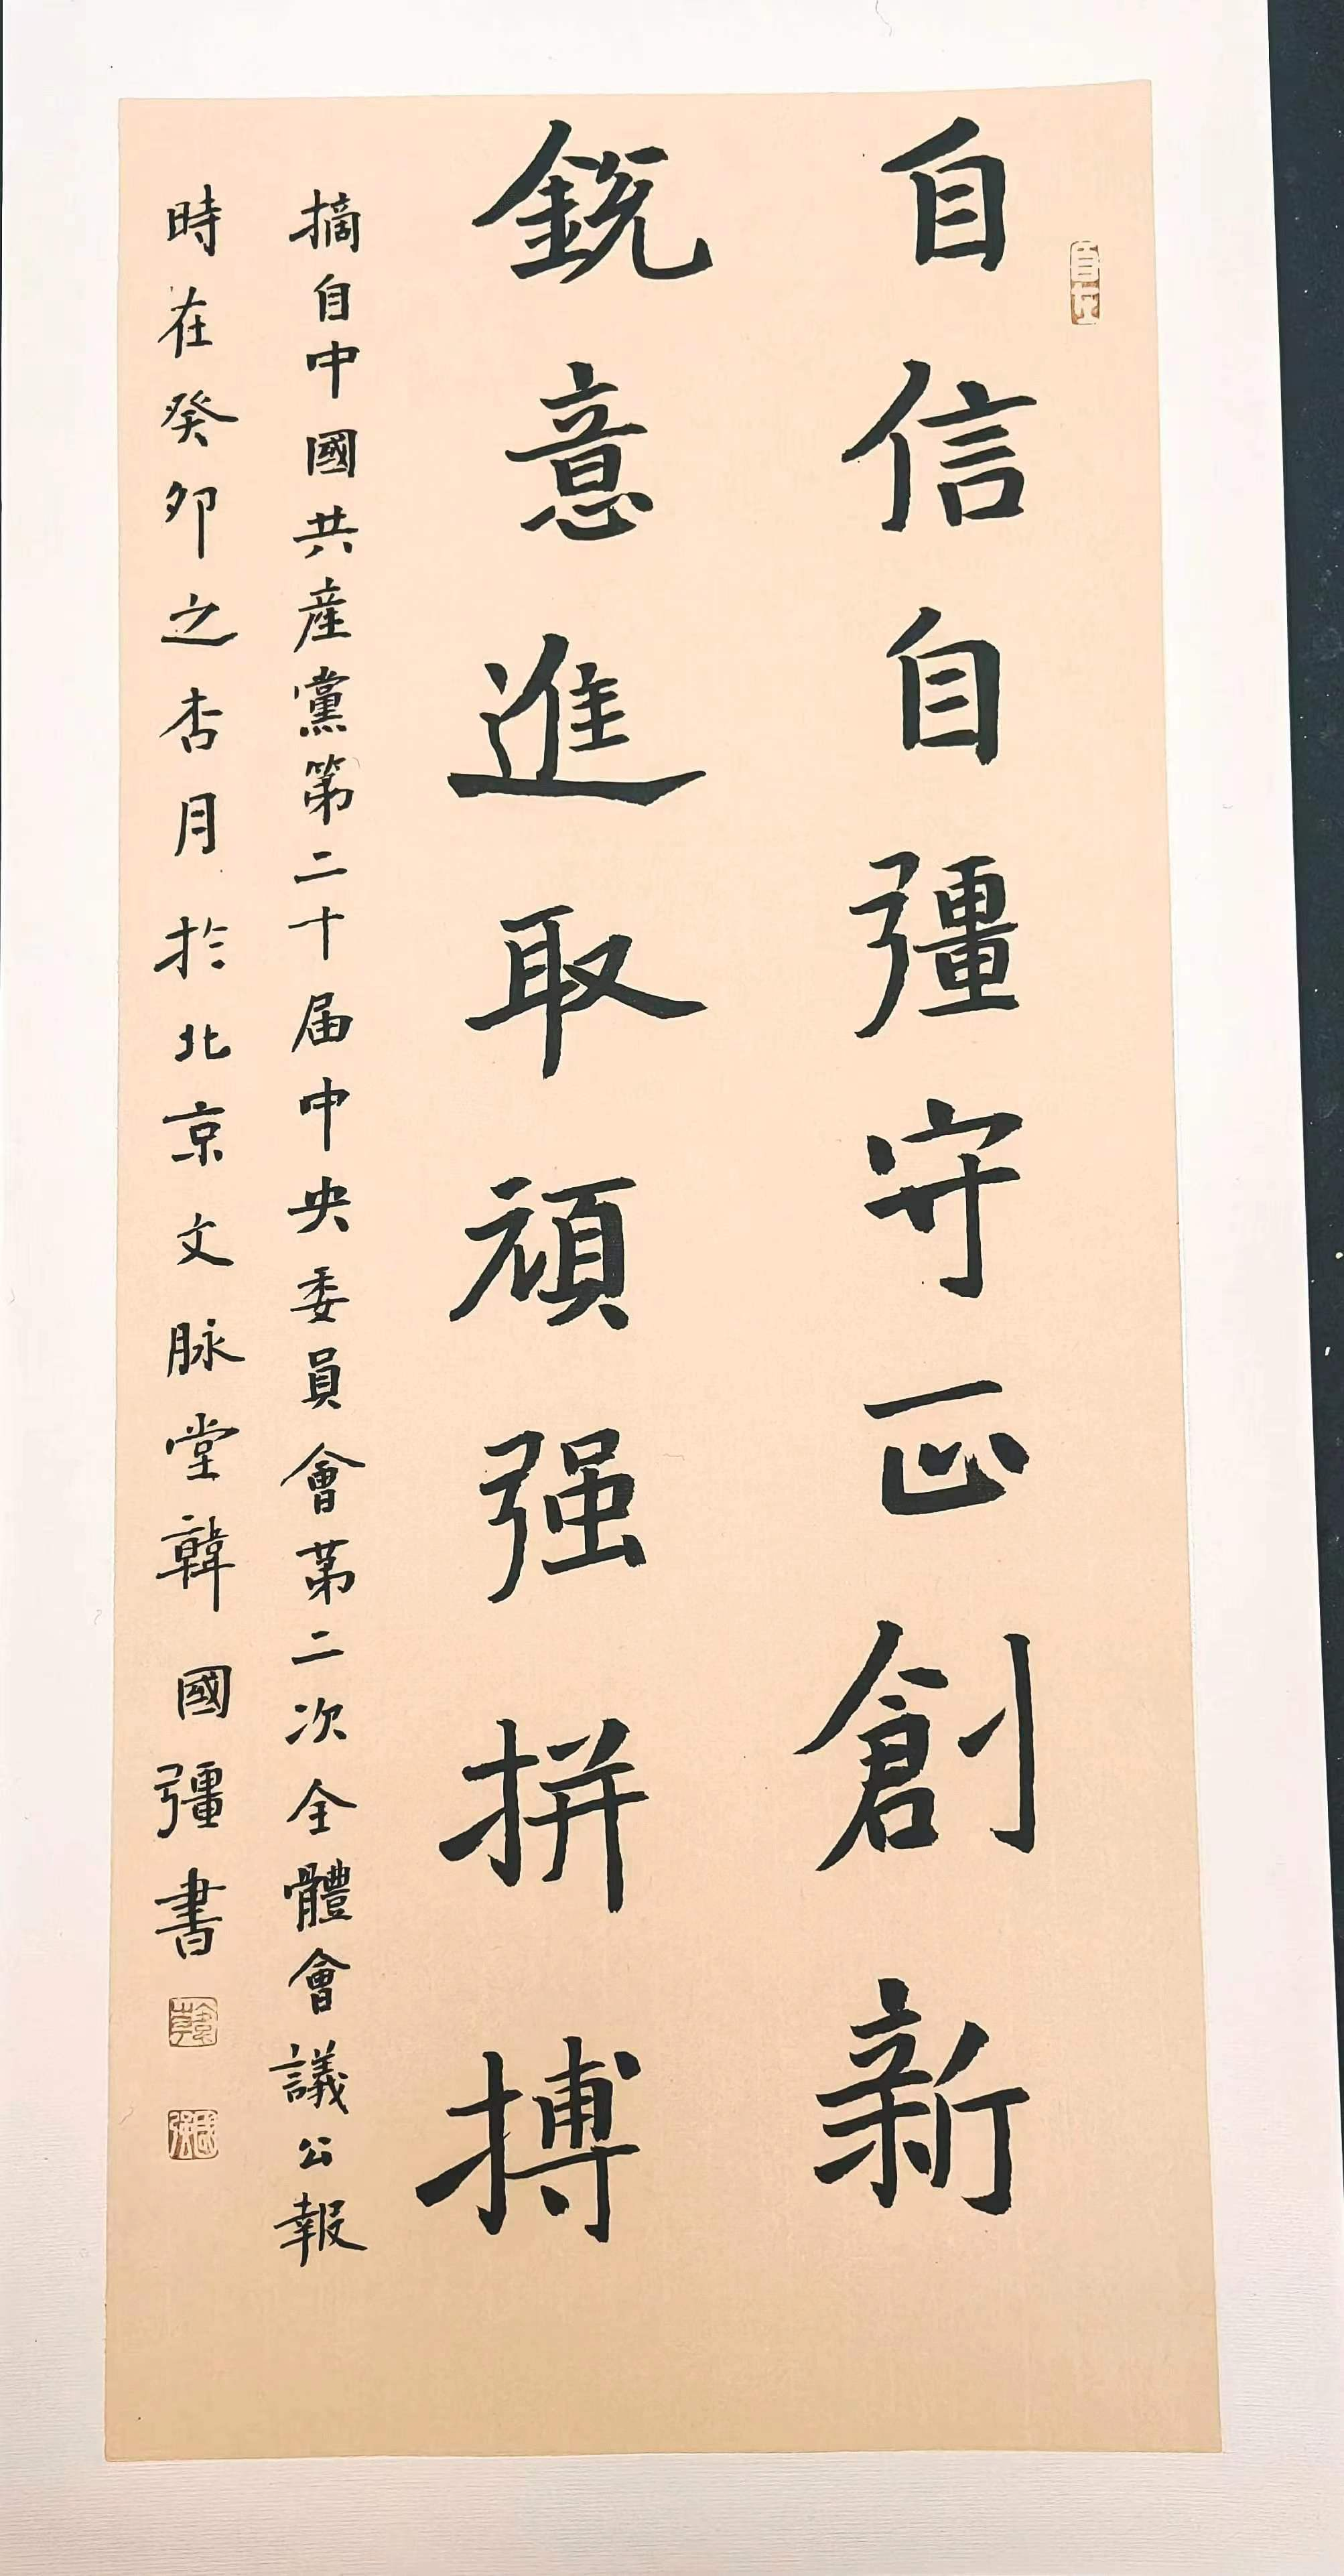 自信自彊守正創新
銳意進取頑强拼搏
摘自中國共産黨第二十届中央委員會第二次全體會議公報
時在癸卯之杏月於北京文脉堂韓國彊書
自在